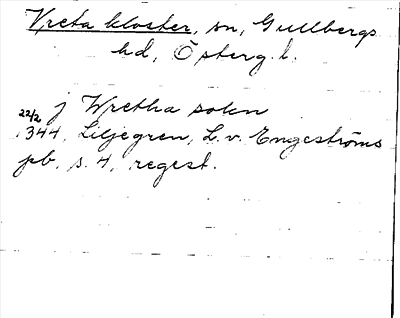 Vreta kloster, sn, Gullbergs
hd, Österg. l.
j Wretha sokn
22/2
1344, Liljegren, L. v. Engeströms
pb. s. 4, regest.